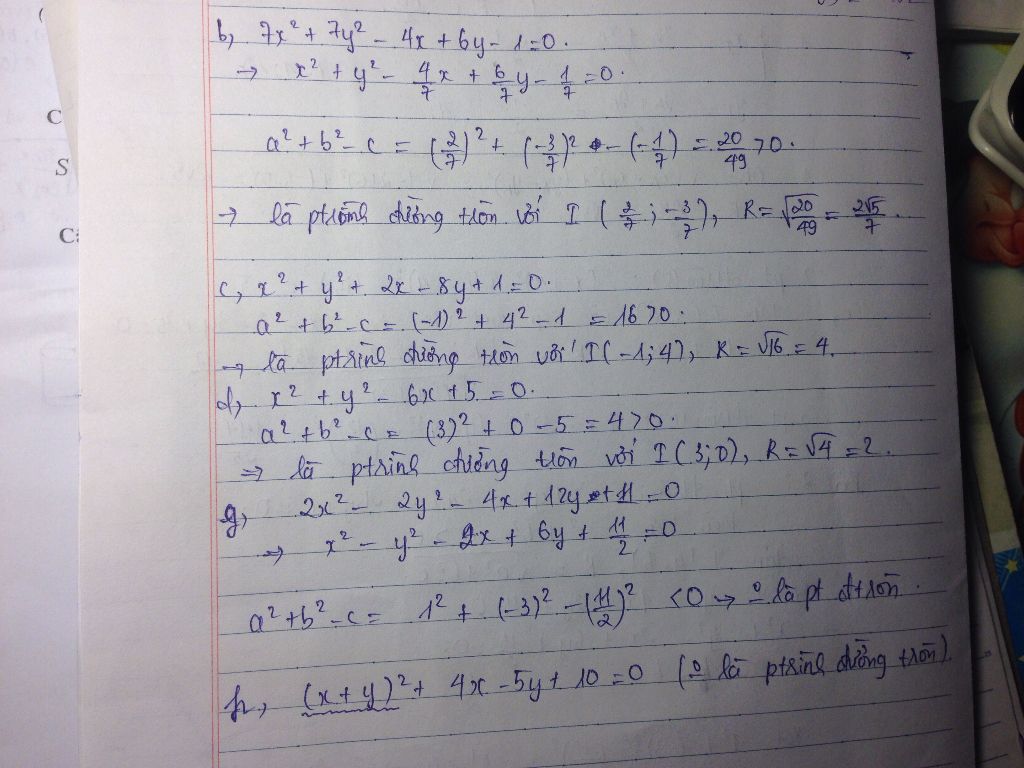 b, 7x² + 7y² - 4x + 6y - 1 = 0.
→ x² + y² - 4/7 x + 6/7 y - 1/7 = 0.
a² + b² - c = (2/7)² + (-3/7)² - (-1/7) = 20/49 > 0.
→ là ptrình đường tròn với I (2/7; -3/7), R = √20/49 = 2√5/7.
c, x² + y² + 2x - 8y + 1 = 0.
a² + b² - c = (-1)² + 4² - 1 = 16 > 0.
→ là ptrình đường tròn với I(-1; 4), R = √16 = 4.
d, x² + y² - 6x + 5 = 0.
a² + b² - c = (3)² + 0 - 5 = 4 > 0.
⇒ là ptrình đường tròn với I(3; 0), R = √4 = 2.
g, 2x² - 2y² - 4x + 12y + 11 = 0
⇒ x² - y² - 2x + 6y + 11/2 = 0
a² + b² - c = 1² + (-3)² - (11/2)² < 0 → o là pt đtròn.
h, (x + y)² + 4x - 5y + 10 = 0 (o là ptrình đường tròn).
C
S